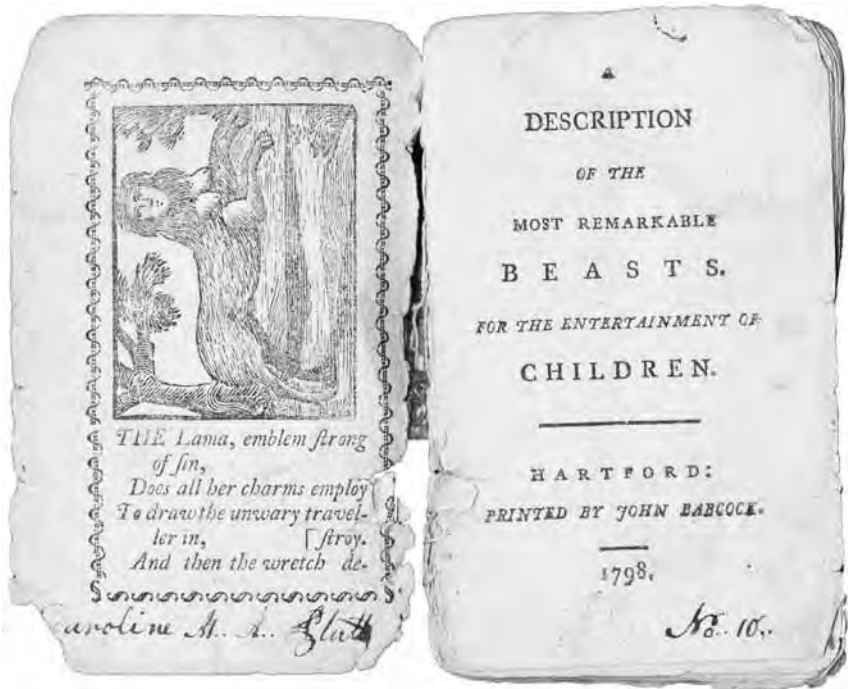 THE Lama, emblem ſtrong
of ſin,
Does all her charms employ
To draw the unwary travel-
ler in, [ſtroy.
And then the wretch de-
M. A.
A
DESCRIPTION
OF THE
MOST REMARKABLE
BEASTS.
FOR THE ENTERTAINMENT OF
CHILDREN.
HARTFORD:
PRINTED BY JOHN BABCOCK.
1798.
No. 10.